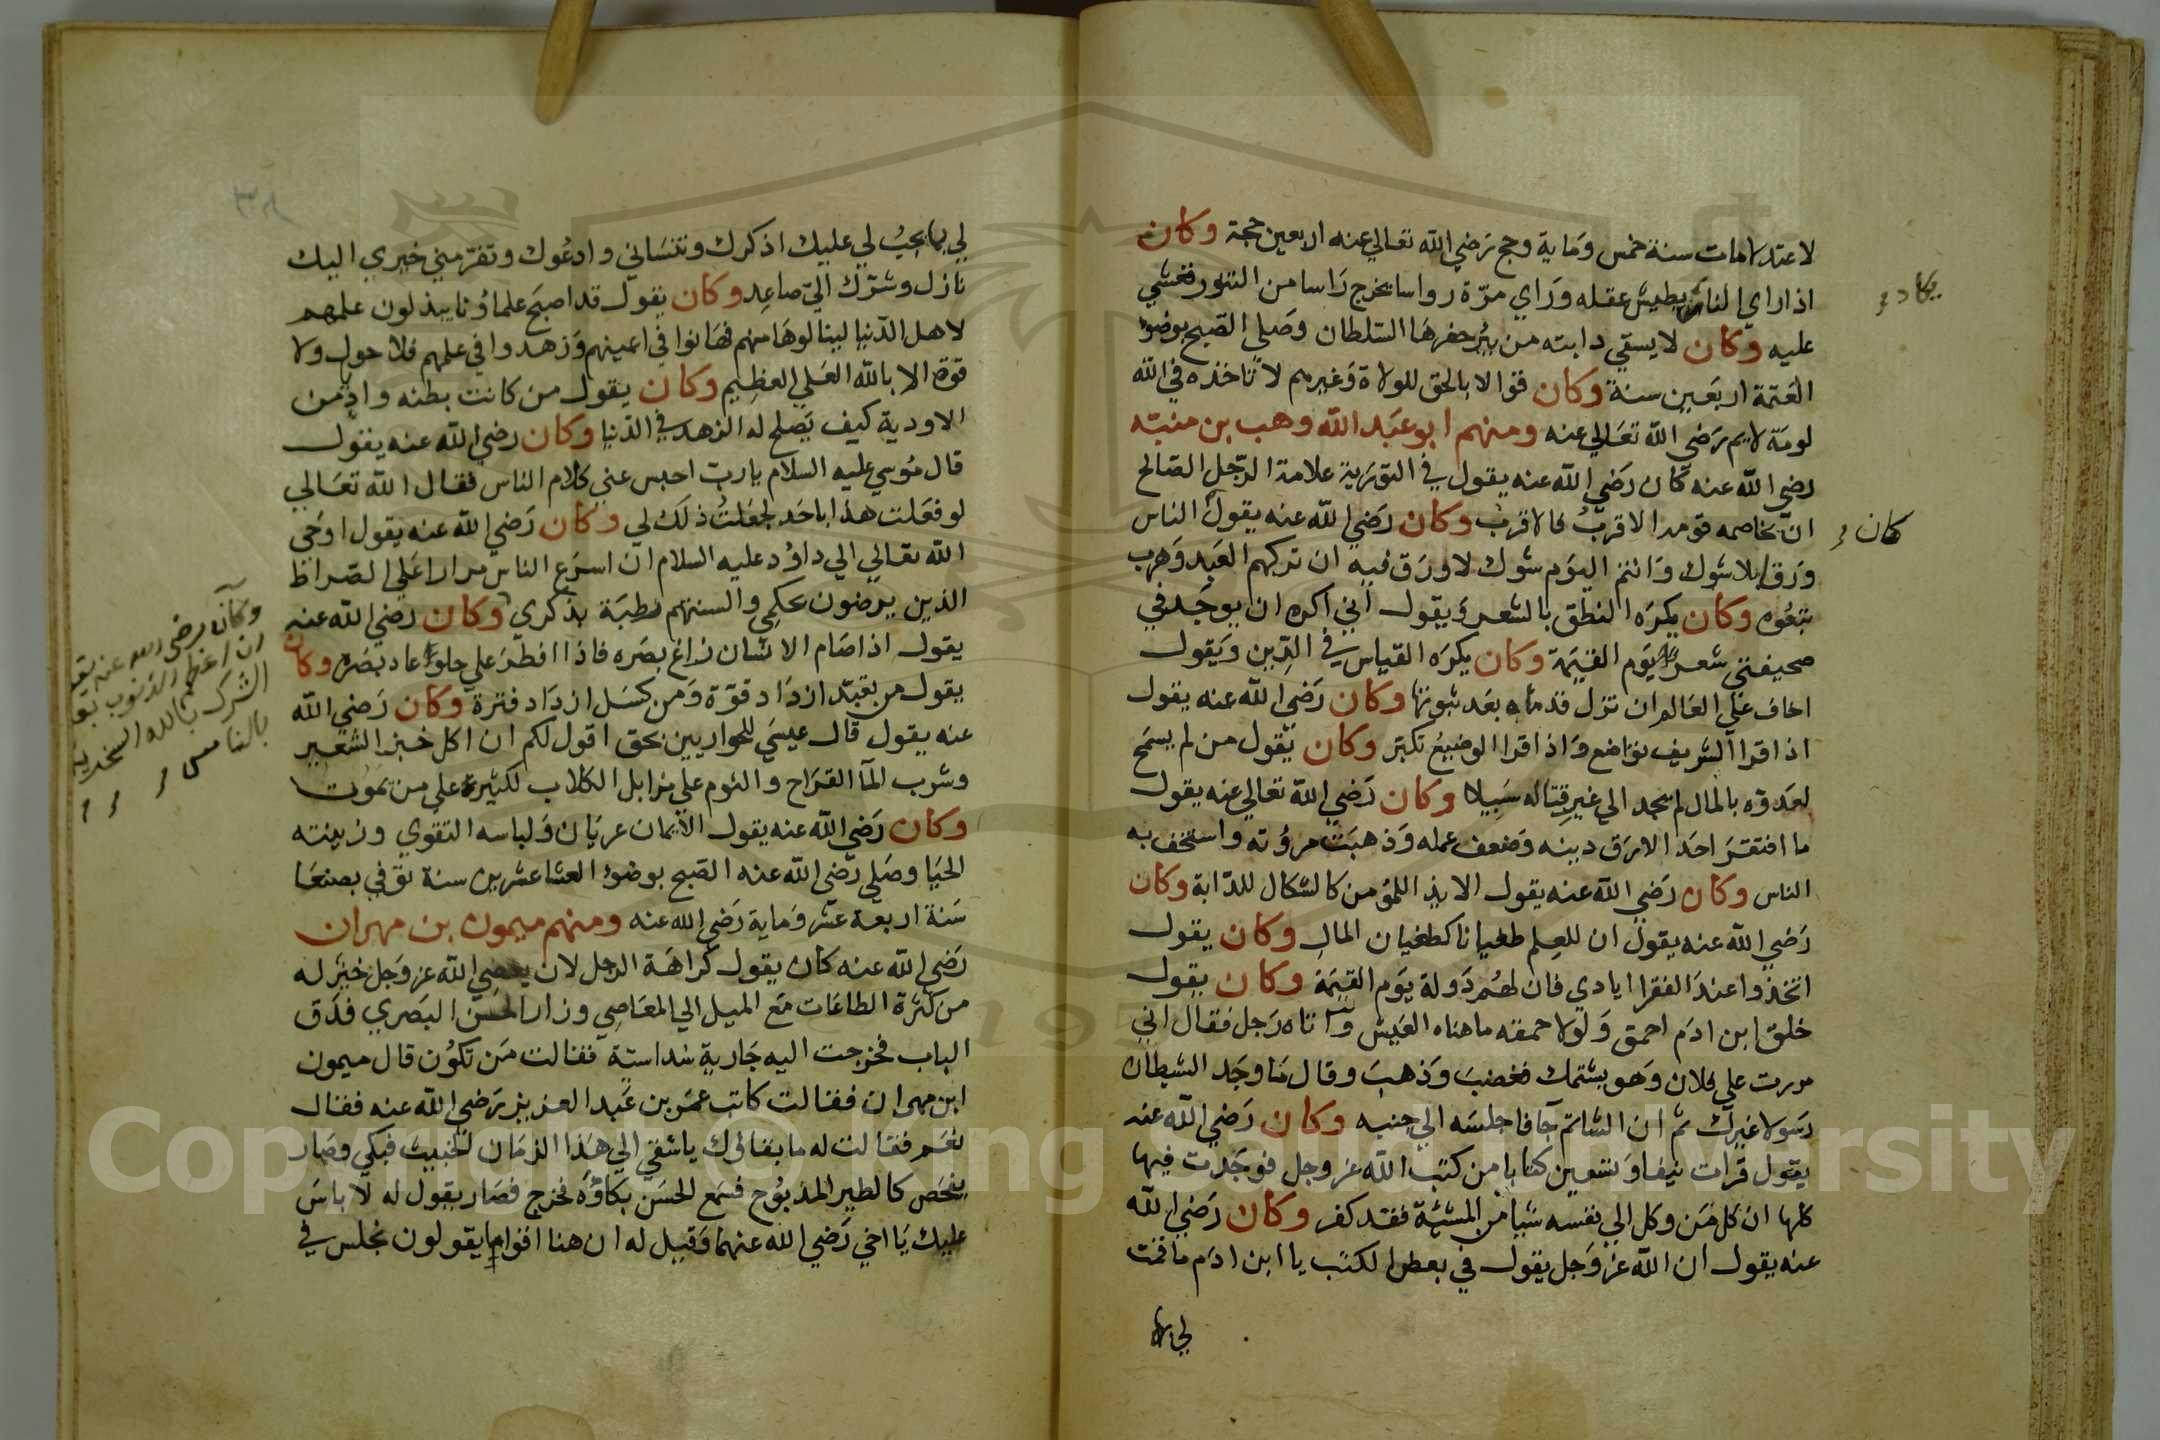 لاعتدلا مات سنة خمس وماية وحج رضي الله تعالي عنه اربعين حجة وكان
اذا راي النار يطيش عقله وراي مرة رواسا يخرج راسا من التنور فغشي
يكاد
عليه وكان لا يسقي دابته من بير حفرها السلطان وصلي الصبح بوضوء
العتمة اربعين سنة وكان قوالا بالحق للولاة وغيرهم لا تاخذه في الله
لومة لايم رضي الله تعالي عنه ومنهم ابو عبد الله وهب بن منبه
رضي الله عنه كان رضي الله عنه يقول في التورية علامة الرجل الصالح
ان يخاصمه قومه الاقرب فالاقرب وكان رضي الله عنه يقول الناس
كان
ورق بلا شوك وانتم اليوم شوك لا ورق فيه ان تركهم العبد وهرب
تبعوه وكان يكره النطق بالشعر ويقول اني اكره ان يوجد في
صحيفتي شعر يوم القيمة وكان يكره القياس في الدين ويقول
اخاف علي العالم ان تزل قدماه بعد ثبوتها وكان رضي الله عنه يقول
اذا قرا الشريف تواضع واذا قرا الوضيع تكبر وكان يقول من لم يسمح
لعدوه بالمال لم يجد الي غير قتاله سبيلا وكان رضي الله تعالي عنه يقول
ما افتقر احد الا رق دينه وضعف عمله وذهبت مروته واستخف به
الناس وكان رضي الله عنه يقول الايذا للمؤمن كالشكال للدابة وكان
رضي الله عنه يقول ان للعلم طغيانا كطغيان المال وكان يقول
اتخذوا عند الفقرا ايادي فان لهم دولة يوم القيمة وكان يقول
خلق ابن ادم احمق ولولا حمقه ما هناه العيش واتاه رجل فقال اني
مررت علي فلان وهو يشتمك فغضب وذهب وقال ما وجد الشيطان
رسولا غيرك ثم ان الشاتم جا فاجلسه الي جنبه وكان رضي الله عنه
يقول قرات نيفا وتسعين كتابا من كتب الله عز وجل فوجدت فيها
كلها ان كل من وكل الي نفسه شيا من المشئة فقد كفر وكان رضي الله
عنه يقول ان الله عز وجل يقول في بعض الكتب يا ابن ادم ما قمت
لي بما
لي بما يجب لي عليك اذكرك وتنساني وادعوك وتفر مني خيري اليك
نازل وشرك الي صاعد وكان يقول قد اصبح علماؤنا يبذلون علمهم
لاهل الدنيا لينالوها منهم فهانوا في اعينهم وزهدوا في علمهم فلا حول ولا
قوة الا بالله العلي العظيم وكان يقول من كانت بطنه واد من
الاودية كيف يصلح له الزهد في الدنيا وكان رضي الله عنه يقول
قال موسي عليه السلام يا رب احبس عني كلام الناس فقال الله تعالي
لو فعلت هذا باحد لجعلت ذلك لي وكان رضي الله عنه يقول اوحي
الله تعالي الي داود عليه السلام ان اسرع الناس مرارا علي الصراط
الذين يرضون بحكمي والسنتهم رطبة بذكري وكان رضي الله عنه
يقول اذا صام الانسان زاغ بصره فاذا افطر علي حلوا عاد بصره وكان
يقول من تعبد ازداد قوة ومن كسل ازداد فترة وكان رضي الله
عنه يقول قال عيسي للحواريين بحق اقول لكم ان اكل خبز الشعير
وشرب المآ القراح والنوم علي مزابل الكلاب لكثير علي من يموت
وكان رضي الله عنه يقول الايمان عريان ولباسه التقوي وزينته
الحيا وصلي رضي الله عنه الصبح بوضو العشا عشرين سنة توفي بصنعا
سنة اربعة عشر وماية رضي الله عنه ومنهم ميمون بن مهران
رضي الله عنه كان يقول كراهة الرجل لان يعصي الله عز وجل خير له
من كثرة الطاعات مع الميل الي المعاصي وزار الحسن البصري فدق
الباب فخرجت اليه جارية سداسية فقالت من تكون قال ميمون
ابن مهران فقالت كاتب عمر بن عبد العزيز رضي الله عنه فقال
نعم فقالت له ما بقاؤك يا شقي الي هذا الزمان الخبيث فبكي وصار
يفحص كالطير المذبوح فسمع الحسن بكاؤه فخرج فصار يقول له لا باس
عليك يا اخي رضي الله عنهما وقيل له ان هنا اقواما يقولون نجلس في
وكان رضي الله عنه يقو
ان اعظم الذنوب بعد
الشرك بالله السخرية
بالناس
Copyright © King Saud University